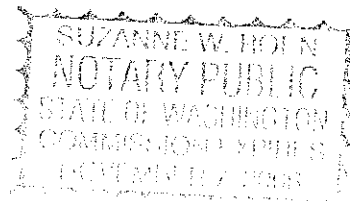 SUZANNE W.
NOTARY PUBLIC
STATE OF WASHINGTON
COMMISSION EXPIRES